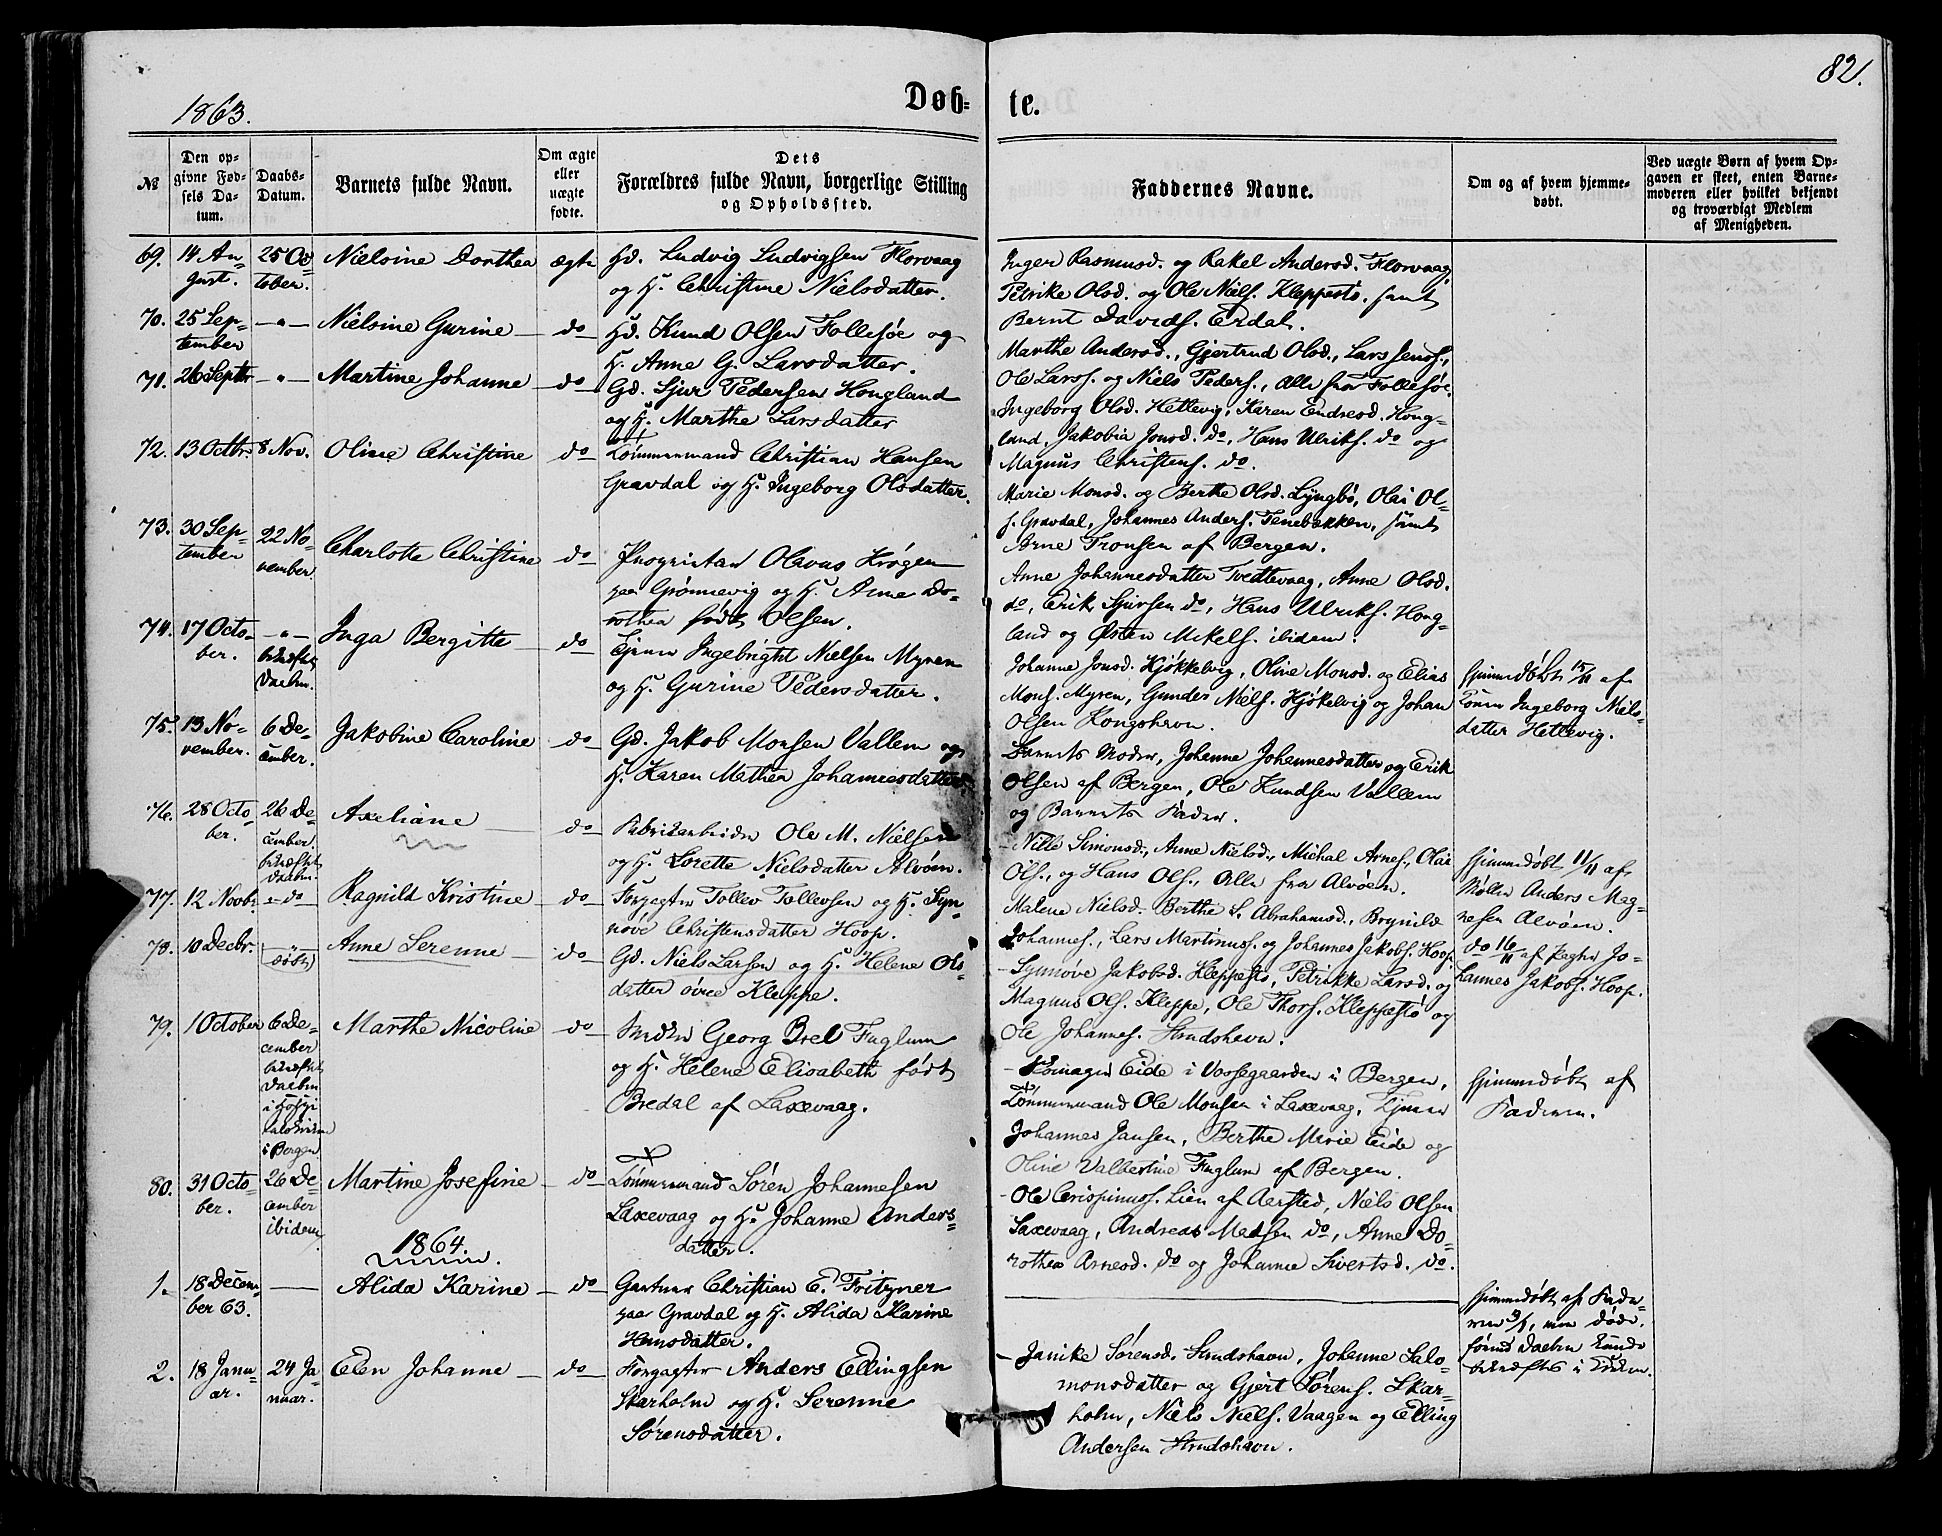 1863.
Døb-
te.
82.
№
Den op-
givne Fød-
sels Da-
tum.
Daabs-
Datum.
Barnets fulde Navn.
Om ægte
eller
uægte
fødte.
Dets
Forældres fulde Navn, borgerlige Stilling
og Opholdssted.
Faddernes Navne.
Om og af hvem hjemme-
døbt.
Ved uægte Børn af hvem Op-
gaven er skeet, enten Barne-
moderen eller hvilket bekjendt
og troværdigt Medlem
af Menigheden.
69.
14 Au-
gust.
25 Oc-
tober.
Nielsine Dorthea
ægte
Hd. Ludvig Ludvigsen Florvaag
og H. Christine Nielsdatter.
Inger Rasmusd. og Rakel Andersd. Florvaag,
Petrike Olsd. og Ole Niels. Kleppestö, samt
Bernt Davids. Erdal.
70.
25 Sep-
tember
—"—
Nielsine Gurine
do
Hd. Knud Olsen Follesøe og
H. Anne G. Larsdatter.
Marthe Andersd., Gjertrud Olsd., Lars Jens.,
Ole Larss. og Niels Peders., Alle fra Follesøe.
71.
26 Septbr
—"—
Martine Johanne
do
Gd. Sjur Pedersen Hougland
og H. Marthe Larsdatter
Ingeborg Olsd. Hetlevig, Karen Endresd. Houg-
land, Jakobia Jonsd. do, Hans Ulriks. do og
Magnus Christens. do.
72.
13 Octbr.
8 Nov.
Oline Christine
do
Tömmermand Christian Hansen
Gravdal og H. Ingeborg Olsdatter.
Marie Monsd. og Berthe Olsd. Lyngbö, Olai Ol-
s. Gravdal, Johannes Anders. Tenebækken, samt
Arne Tronsen af Bergen.
73.
30 Sep-
tember
22 No-
vember.
Charlotte Christine
do
Proprietær Olavus Krøgen
paa Grönnevig og H. Anne Do-
rothea født Olsen.
Anne Johannesdatter Tvedtevaag, Anne Olsd.
do, Erik Sjursen do, Hans Ulriks. Houg-
land og Østen Mikels. ibidem.
74.
17 Octo-
ber.
—"—
bekræftet
Daaben.
Inga Bergitte
do
Tjener Ingebright Nielsen Myren
og H. Gurine Pedersdatter.
Johanne Jonsd. Kjøkkelvig, Oline Monsd. og Elias
Mons. Myren, Gunder Niels. Kjökelvig og Johan
Olsen Kongshavn.
Hjemmedøbt 15/11 af
Ingeborg Niels-
datter Hetlevig.
75.
13 No-
vember.
6 De-
cember.
Jakobine Caroline
do
Gd. Jakob Monsen Vallem og
H. Karen Mathea Johannesdatter.
Barnets Moder, Johanne Johannesdatter og Erik
Olsen af Bergen, Ole Knudsen Vallem
og Barnets Fader.
76.
28 Octo-
ber.
26 De-
cember.
bekræftet
Daaben.
Axeliane
do
Fabrikarbeider Ole M. Nielsen
og H. Lorette Nielsdatter Alvöen.
- Nille Simonsd., Anne Nielsd., Michal Arnes., Olai
Ols., og Hans Ols., Alle fra Alvöen.
Hjemmedøbt 11/11 af
Møller Anders Mag-
nesen Alvöen.
77.
12 Novbr.
-"do-
Ragnild Kristine
do
Forpagter Tollev Tollevsen og H. Syn-
növe Christensdatter Hoop.
Malene Nielsd. Berthe S. Abrahamsd., Brynild
Johannes., Lars Martinus. og Johannes Jakobs. Hoop.
do 16/11 af Pagter Jo-
hannes Jakobs. Hoop.
78.
10 Decbr.
—"—
døbt
Anne Serenne
do
Gd. Niels Larsen og H. Helene Ols-
datter övre Kleppe.
- Synnöve Jakobsd. Kleppestö, Petrikke Larsd. og
Magnus Ols. Kleppe, Ole Thors. Kleppestö og
Ole Johannes. Strudshavn.
79.
1 October
6 De-
cember
bekræftet
Daaben
i Hospi-
talskirken
i Bergen
Marthe Nicoline
do
Smeden Georg Brel Fuglum
og H. Helene Elisabeth født
Bredal af Laxevaag.
- Skomager Eide i Vossegaarden i Bergen,
Tömmermand Ole Monsen i Laxevaag, Tjener
Johannes Jansen, Berthe Marie Eide og
Oline Valbertine Fuglum af Bergen.
Hjemmedøbt af
Faderen.
80.
31 Octo-
ber.
26 De-
cember
ibidem,
Martine Josefine
do
Tömmermand Sören Johannesen
Laxevaag og H. Johanne Anders-
datter.
- Ole Crispinuss. Lien af Aarstad, Niels Olsen
Laxevaag, Andreas Madsen do, Anne Do-
rothea Arnesd. do og Johanne Sivertsd. do.
1864.
1.
18 Decem-
ber 63.
—
Alida Karine
do
Gartner Christian E. Fritzner
paa Gravdal og H. Alida Karine
Hansdatter.
Hjemmedøbt af Fade-
ren 3/1, men døde,
førend Daaben kunde
bekræftes i Kirken.
2.
18 Janu-
ar.
24 Ja-
nuar.
Elen Johanne
do
Forpagter Anders Ellingsen
Skarholm og H. Serenne
Sörensdatter.
- Janike Sörensd. Strudshavn, Johanne Salo-
monsdatter og Gjert Sörens. Skar-
holm, Niels Niels. Vaagen og Elling
Andersen Strudshavn.